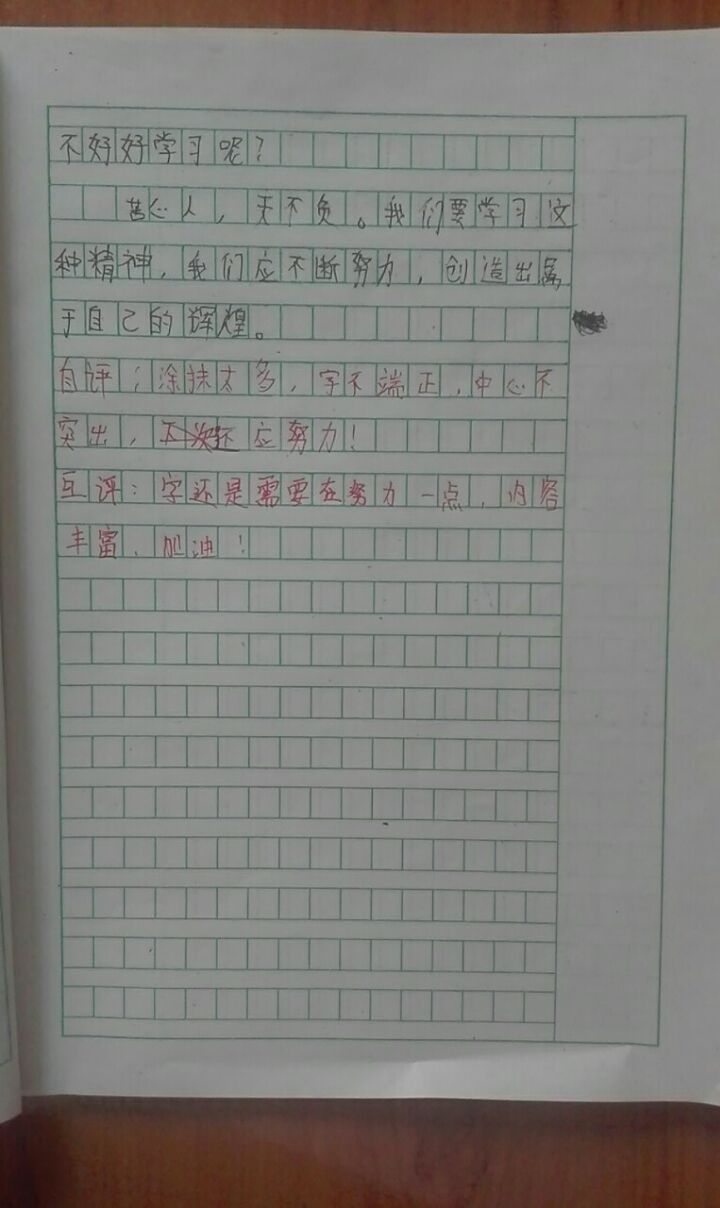 不好好学习呢？
苦心人，天不负。我们要学习这
种精神，我们应不断努力，创造出属
于自己的辉煌。
自评：涂抹太多，字不端正，中心不
突出，下次还应努力！
互评：字还是需要在努力一点，内容
丰富，加油！